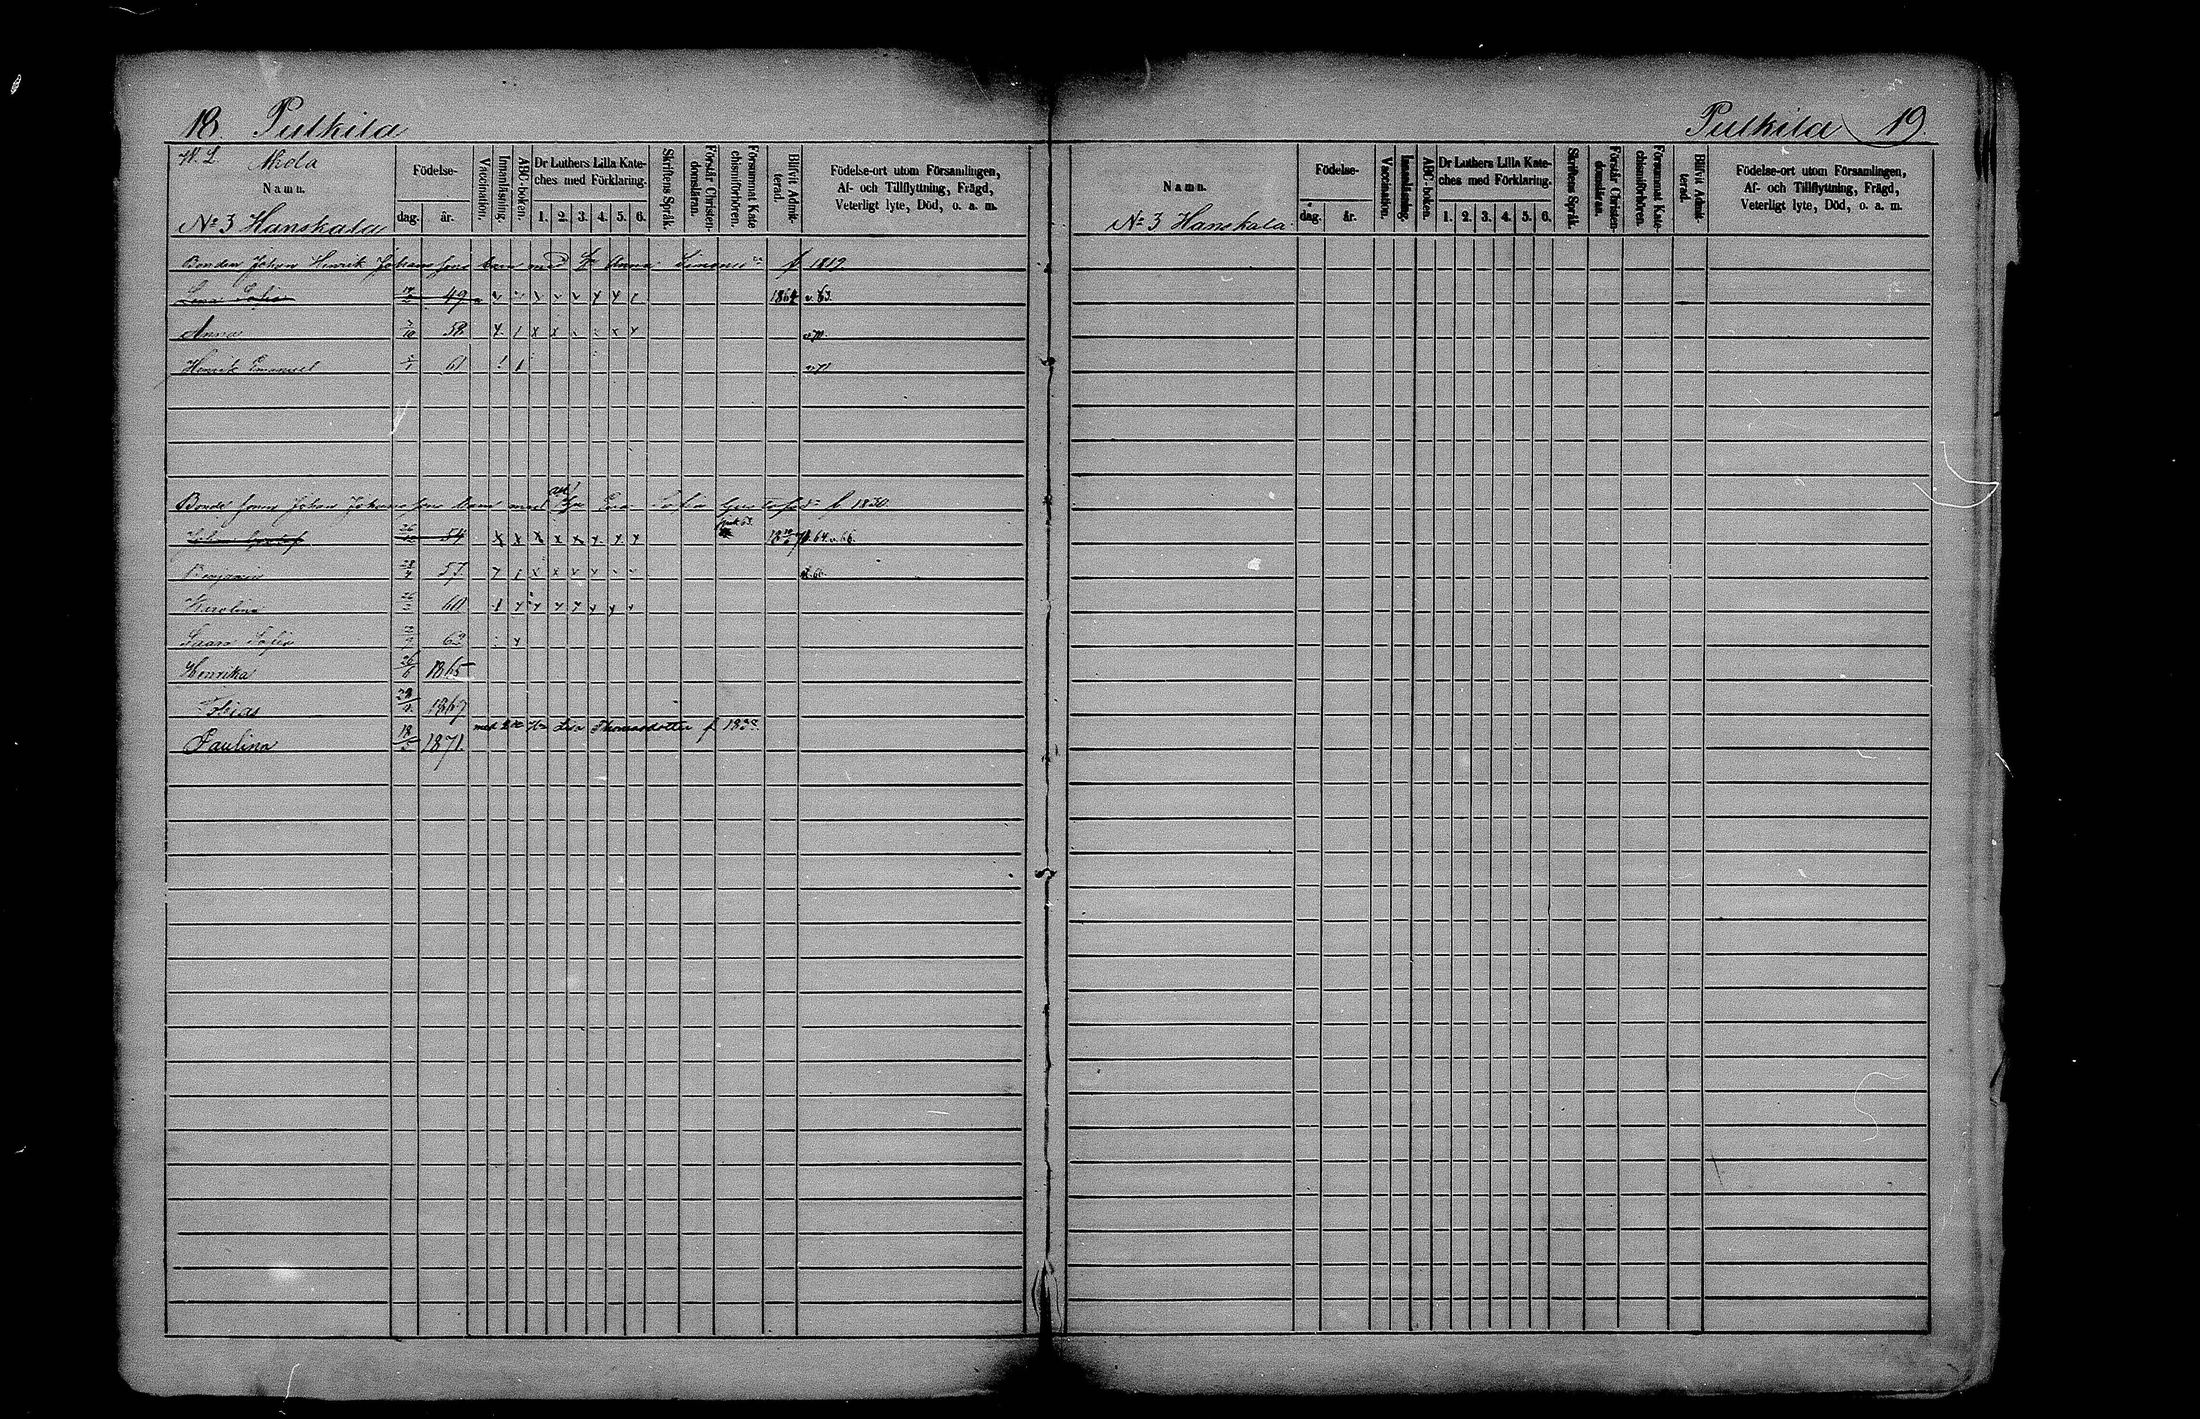 18. Pulkila
W. L. Akola
Namn.
Födelse-
dag. år.
Vaccination.
Innanläsning.
ABC-boken.
Dr Luthers Lilla Kate-
ches med Förklaring.
1. 2. 3. 4. 5. 6.
Skriftens Språk.
Förstår Christen-
domsläran.
Försummat Kate
chismiförhören.
Blifvit Admit-
terad.
Födelse-ort utom Församlingen,
Af- och Tillflyttning, Frägd,
Veterligt lyte, Död, o. a. m.
No 3 Hanskala
Bonden Johan Henrik Johanssons barn med H. Anna Simonsdr f 1819.
Lena Sofia 49 1864 v. 63.
Anna 58
Henrik Emanuel 61 v 71
Bonde sonen Johan Johanssons barn med Hu Eva Sofia Gustafsdr f 1830.
Johan Gustaf 54 64 v. 66.
Benjamin 57.
Karolina 60
Sofia 62
Henrika 26/6 1865
Tobias 1867
med Hu Lisa Thomasdotter f
Paulina 18/5 1871.
Pulkila 19.
Namn.
No 3 Hanskala
Födelse-
dag. år.
Vaccination.
Innanläsning.
ABC-boken.
Dr Luthers Lilla Kate-
ches med Förklaring.
1. 2. 3. 4. 5. 6.
Skriftens Språk.
Förstår Christen-
domsläran.
Försummat Kate-
chismiförhören.
Blifvit Admit-
terad.
Födelse-ort utom Församlingen,
Af- och Tillflyttning, Frägd,
Veterligt lyte, Död, o. a. m.